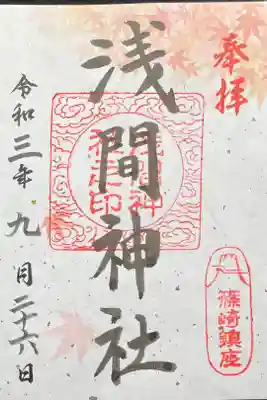 奉拝
浅間神社
浅間神
社之印
篠崎鎮座
令和三年九月二十六日